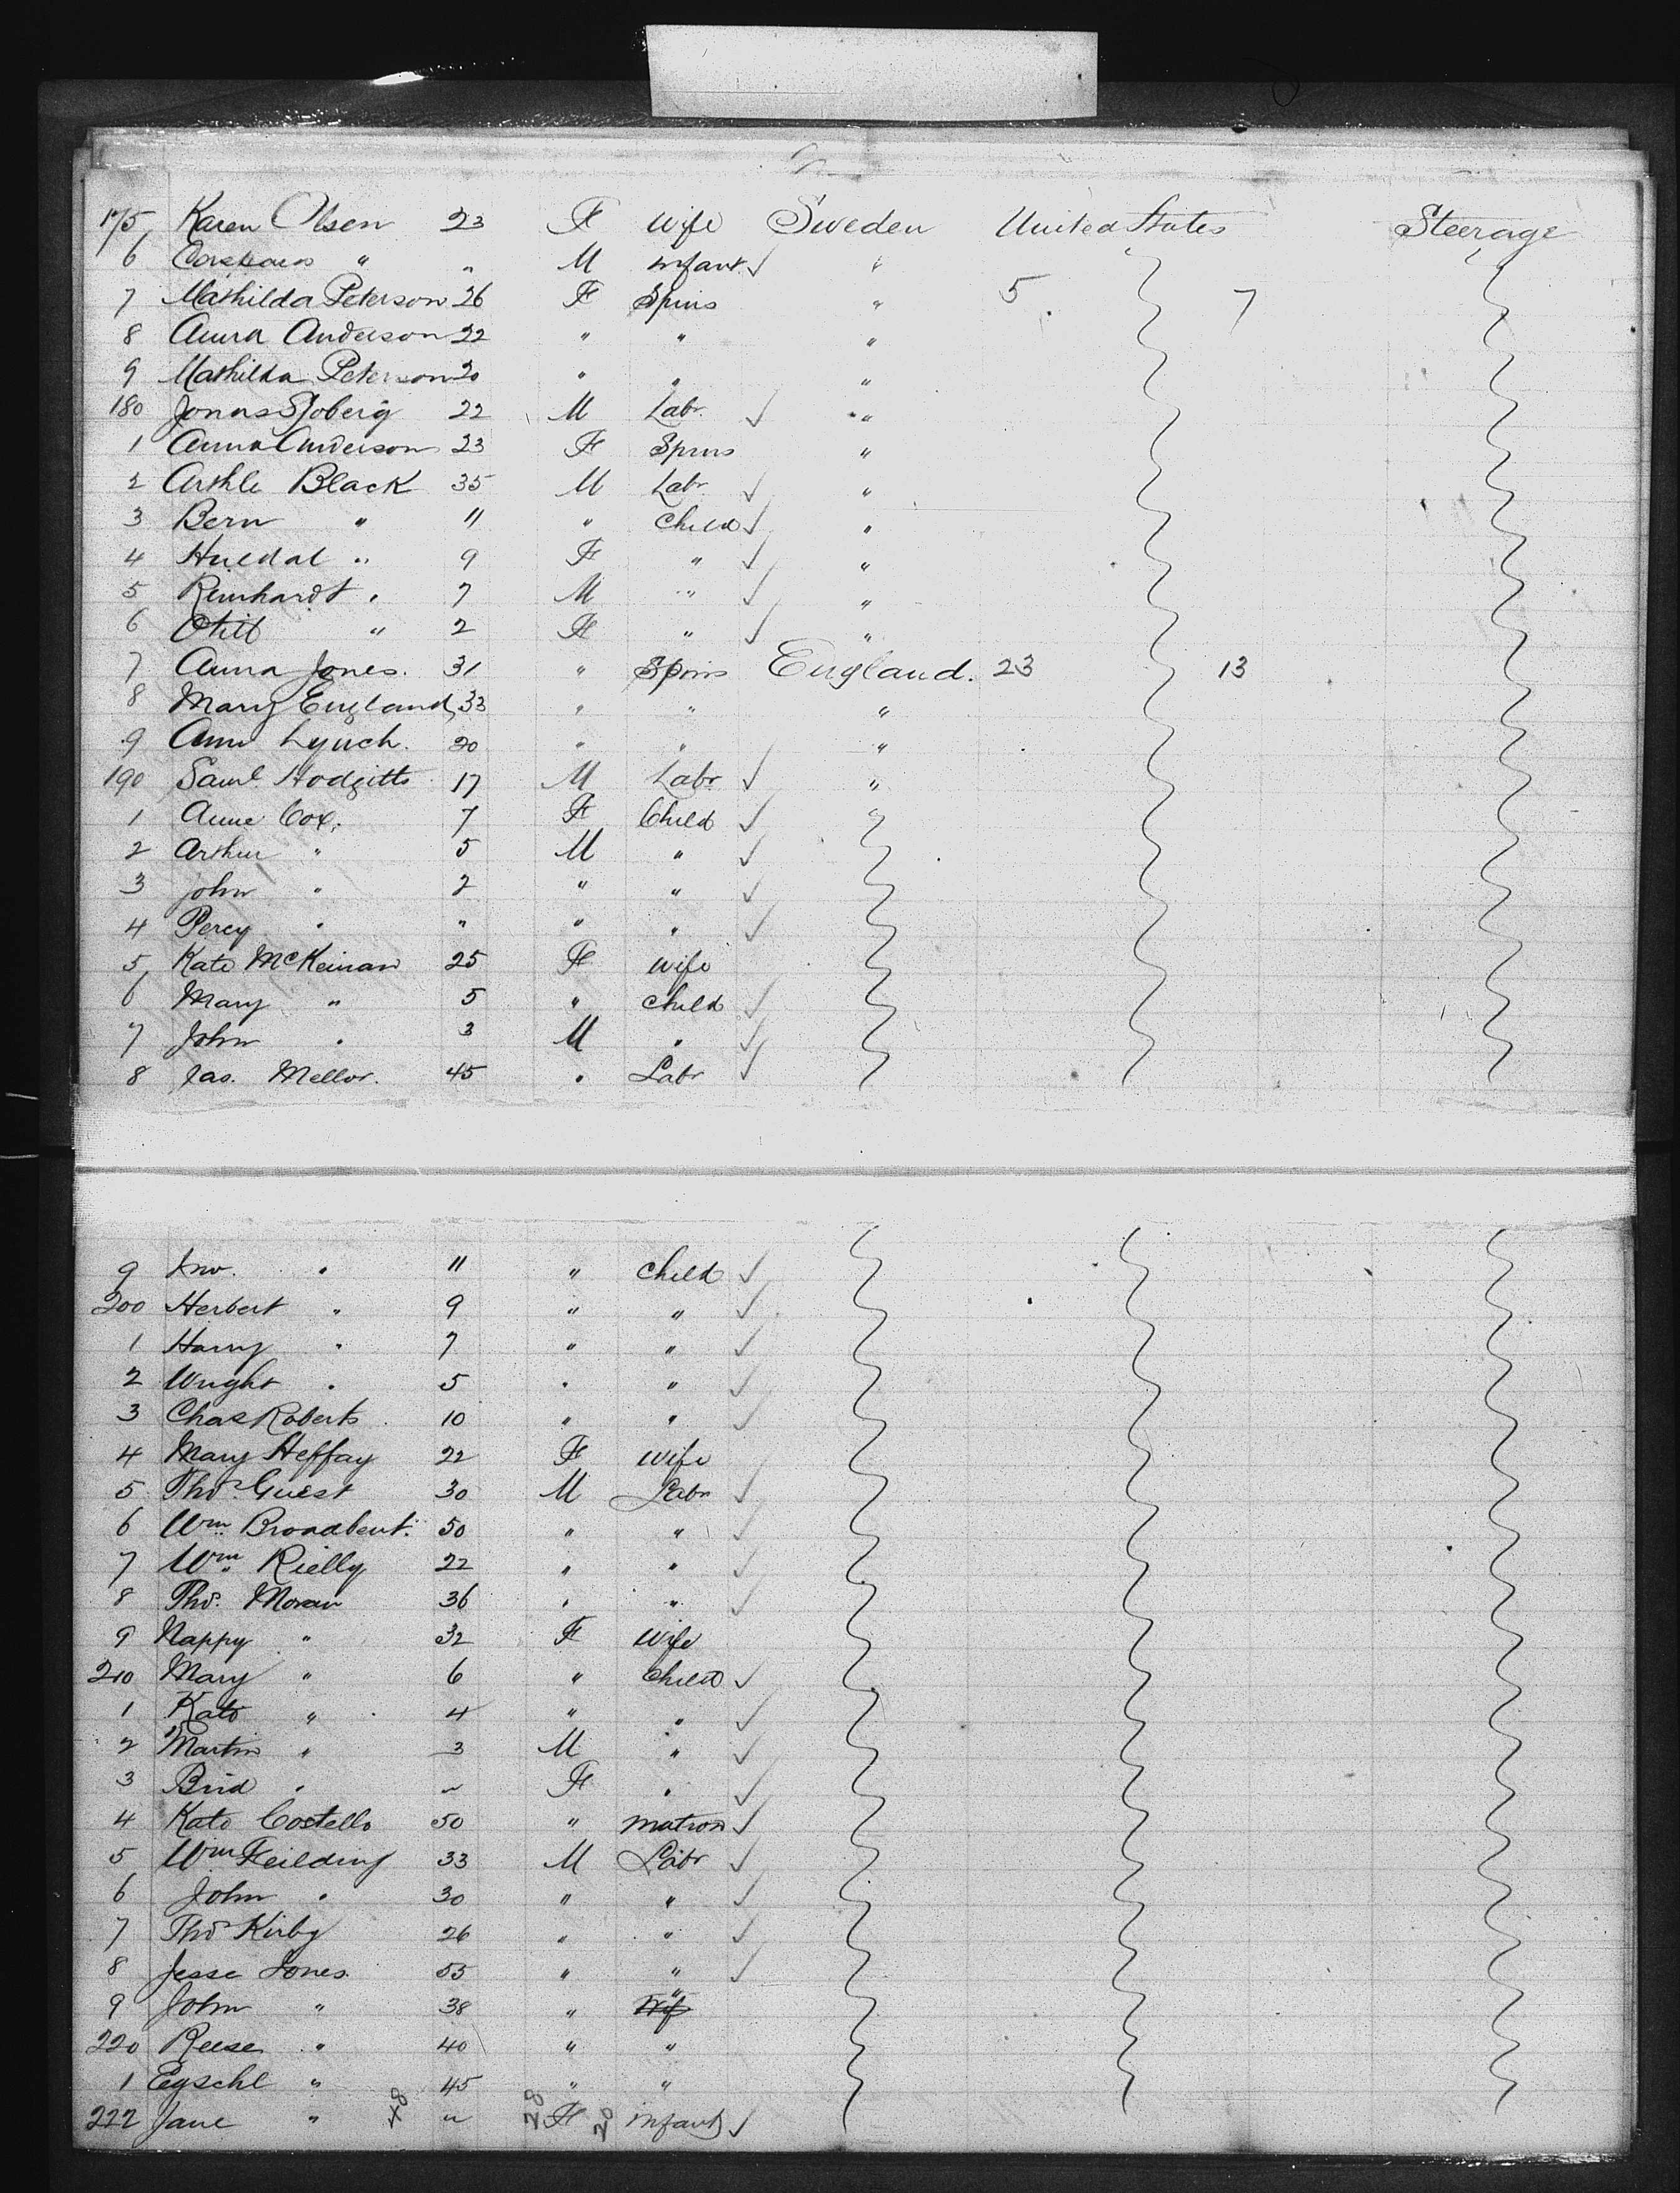 175 Karen Olsen 23 F Wife Sweden United States Steerage
6 " " M Infant ✓ "
7 Mathilda Peterson 26 F Spins " 5 7
8 Anna Anderson 22 " " "
9 Mathilda Peterson 20 " " "
180 Jonas Sjoberg 22 M Labr ✓ "
1 Anna Anderson 23 F Spins "
2 Arthle Black 35 M Labr ✓ "
3 Bern " 11 " Child ✓ "
4 Huldal " 9 F " ✓ "
5 Reinhardt " 7 M " ✓ "
6 " 2 F " ✓ "
7 Anna Jones. 31 " Spins England. 23 13
8 Mary England 33 " " "
9 Ann Lynch. 20 " " "
190 Saml Hodgitts 17 M Labr ✓ "
1 Anne Cox. 7 F Child ✓ "
2 Arthur " 5 M " ✓
3 John " 2 " " ✓
4 Percy " " " " ✓
5 Kate McKeinan 25 F Wife
6 Mary " 5 " Child ✓
7 John " 3 M " ✓
8 Jas. Mellor. 45 " Labr ✓
9 Jno. " 11 " Child ✓
200 Herbert " 9 " " ✓
1 Harry " 7 " " ✓
2 Wright " 5 " " ✓
3 Chas Roberts 10 " " ✓
4 Mary Heffay 22 F Wife
5 Thos Guest 30 M Labr ✓
6 Wm Broadbent. 50 " " ✓
7 Wm Rielly 22 " " ✓
8 Thos. Moran 36 " " ✓
9 Nappy " 32 F Wife
210 Mary " 6 " Child ✓
1 Kate " 4 " " ✓
2 Martin " 3 M " ✓
3 Brid " " F " ✓
4 Kate Costello 50 " Matron ✓
5 Wm Feilding 33 M Labr ✓
6 John " 30 " " ✓
7 Thos Kirby 26 " " ✓
8 Jesse Jones. 55 " " ✓
9 John " 38 " Wif "
220 Reese " 40 " "
1 Egschl " 45 " "
222 Jane " 48 " 28 F 20 infant ✓